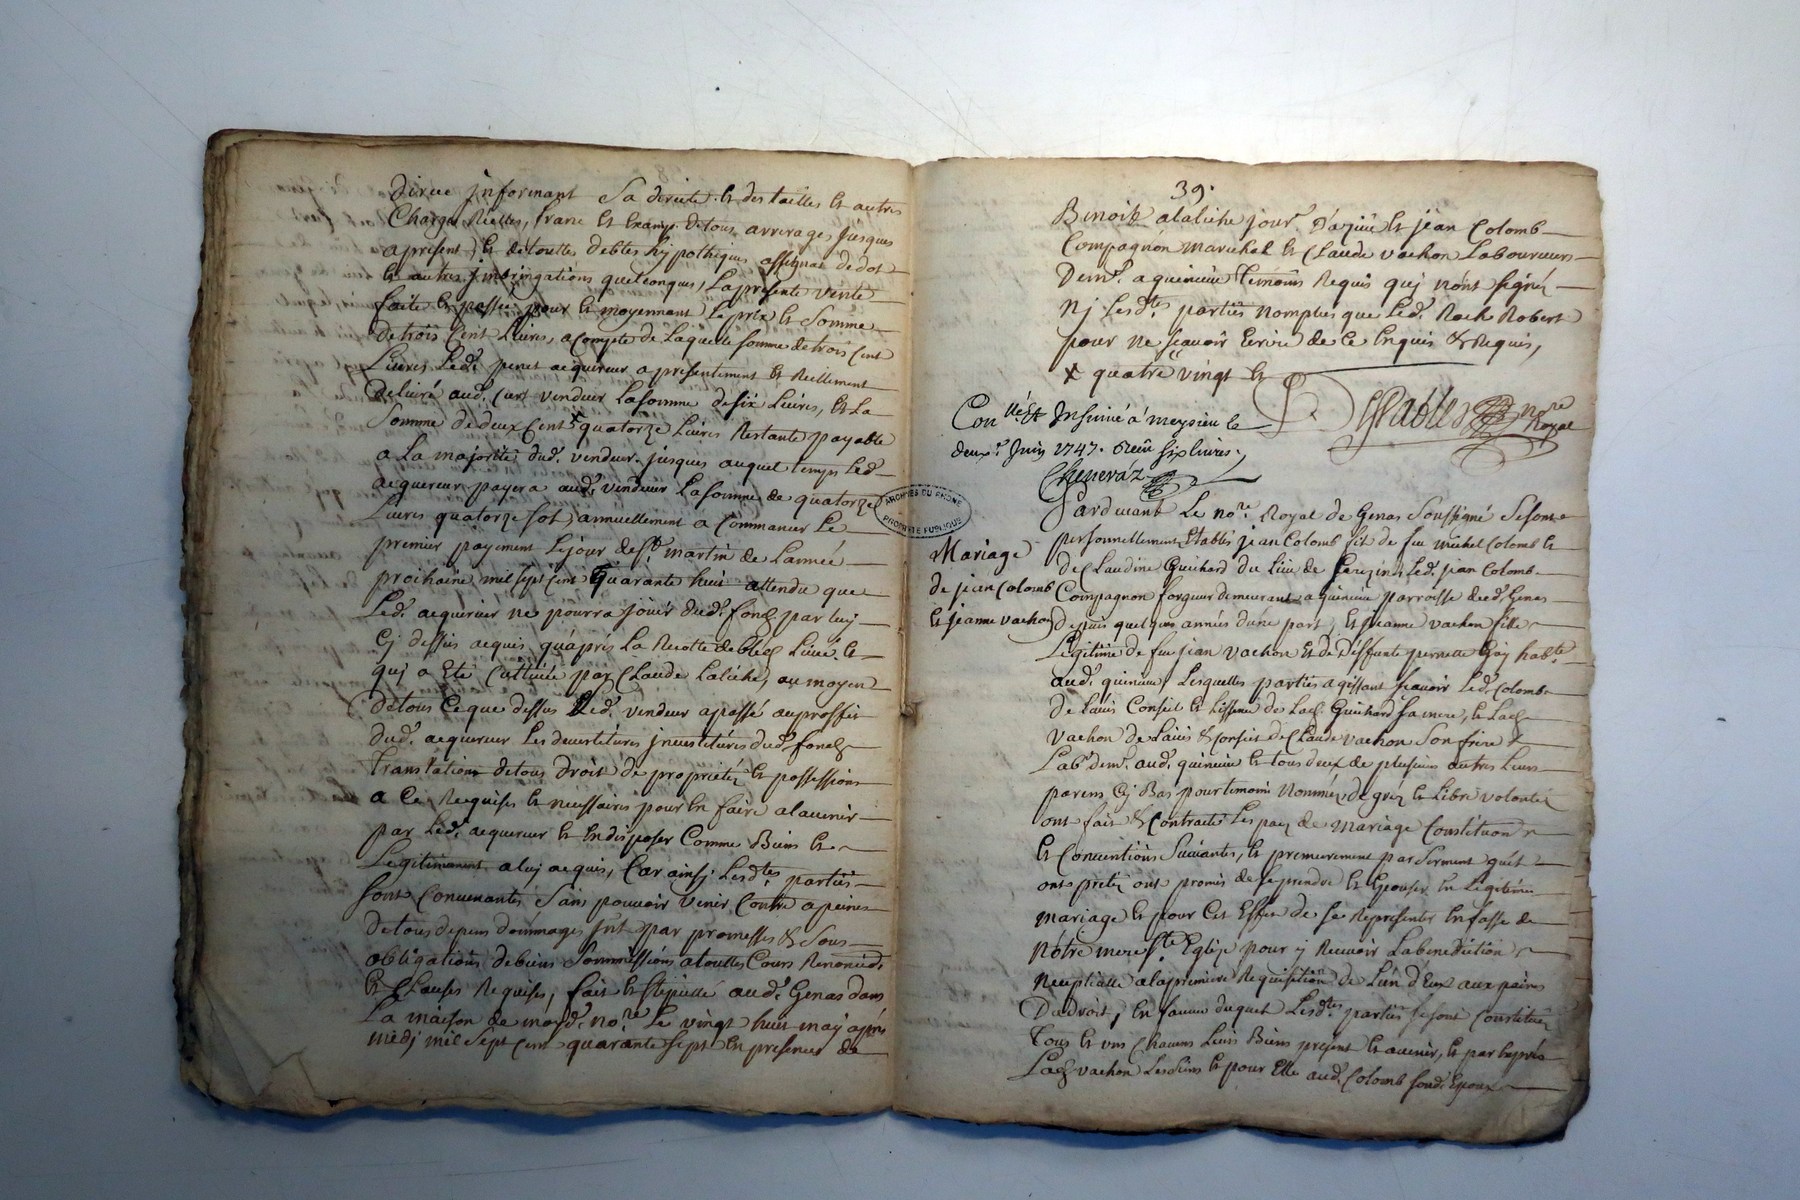 directe informant Sa directe & des tailles et autres
Charges Réelles, franc et Exampt de tous arrerages jusques
apresent, et de touttes debtes hypothéques assignat de dot
et autres quelconques, La presente vente
faite et passée pour et moyennant Le prix et Somme
de trois Cent Livres, a Compte de Laquelle somme de trois Cent
Livres Led. acquereur a presentement et Réellement
Délivré aud. vendeur La somme de six Livres, Et La
Somme de deux Cent quatorze Livres Restante payable
a La majorité dud. vendeur. jusques auquel temps Led.
acquereur payera aud. vendeur La somme de quatorze
Livres quatorze sols annuellement a Commancer Le
premier payement Le jour de st. martin de Lannée
prochaine mil sept Cent Quarante huit attendu que
Led. acquereur ne pourra jouir dud. fond par luy
Cy dessus acquis qu'après La Recolte de bled Levée
quj a Eté Cultivée par Claude Laliche, au moyen
De tous Ce que dessus Led. vendeur a passé au proffit
dud. acquereur Les devestitures investitures dud. fond
translations de tous droit de proprieté et possessions
a Ce Requises et necessaires pour En faire alavenir
par Led. acquereur Et En disposer Comme Biens
Legitimement a luy acquis, Car ainsi Lesdtes parties
sont Convenantes Sans pouvoir venir Contre a peines
De tous depens dommages par promesses & Sous
obligations de biens Soumissions a touttes Cours Renoncia.
Et Clauses Requises, fait et stipullé aud. Genas dans
La maison de moyd. nore. Le vingt huit may après
midj mil sept Cent quarante sept En presence de
39.
Benoit alaliche jour. Dazieu et jean Colomb
Compagnon marechal et Claude vachon Laboureurs
Demt. a quincieu temoins Requis quj n'ont signés
Nj Lesdtes. parties que Led. Roch Robert
pour ne sçavoir Ecrire de Ce Enquis & Requis,
x quatre vingt et
Desrables nore Royal
Conllé Et Insinué a meysieu le
deux. Juin 1747. Reçu six livres.
Cheneváz
Mariage
de jean Colomb
Et jeanne vachon
Pardevant Le nore. Royal de Genas Soussigné Se sont
personnellement Etablis jean Colomb fils de feu michel Colomb et
de Claudine Guichard du Lieu de Led. jean Colomb
Compagnon forgeur demeurant a quincieu parroisse dud. Genas
depuis quelques années d'une part, Et jeanne vachon fille
Legitime de feu jean vachon Et de Deffunte pernette Gay habte.
aud. quincieu, Lesquelles parties agissant sçavoir Led. Colomb
de Lavis Conseil et de Lad. Guichard sa mere, et Lad.
vachon de Lavis & Conseil de Claude vachon Son frere
Labr demt. aud. quincieu et tous deux de plusieurs autres Leurs
parens Cj Bas pour temoins Nommés, de gréz et Libre volontéz
ont fait & Contracté Les pacz de mariage Constitution
et Conventions Suivantes, Et premierement par Serment quils
ont prétéz ont promis de se prendre Et Epouser En Legitime
mariage et pour Cet Effet de se Representer En fasse de
Notre mere ste. Eglise pour y Recevoir La benediction
Neuptialle a la premiere Requisition de Lun d'Eux aux peines
De droit, En faveur duquel Lesdtes parties se sont Constitués
Tous et uns Chacuns Leurs Biens present et avenir, et par Exprès
Lad. vachon Les siens et pour Elle aud. Colomb sond. Epoux